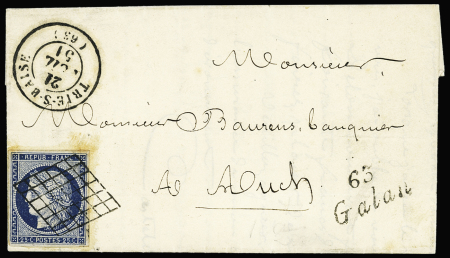 TRIE-S-BAISE
21
JUIL
51
(65)
Monsieur
Monsieur Baurens, banquier
A Auch
65
Galan
REPUB. FRANC.
25 C. POSTES 25 C.